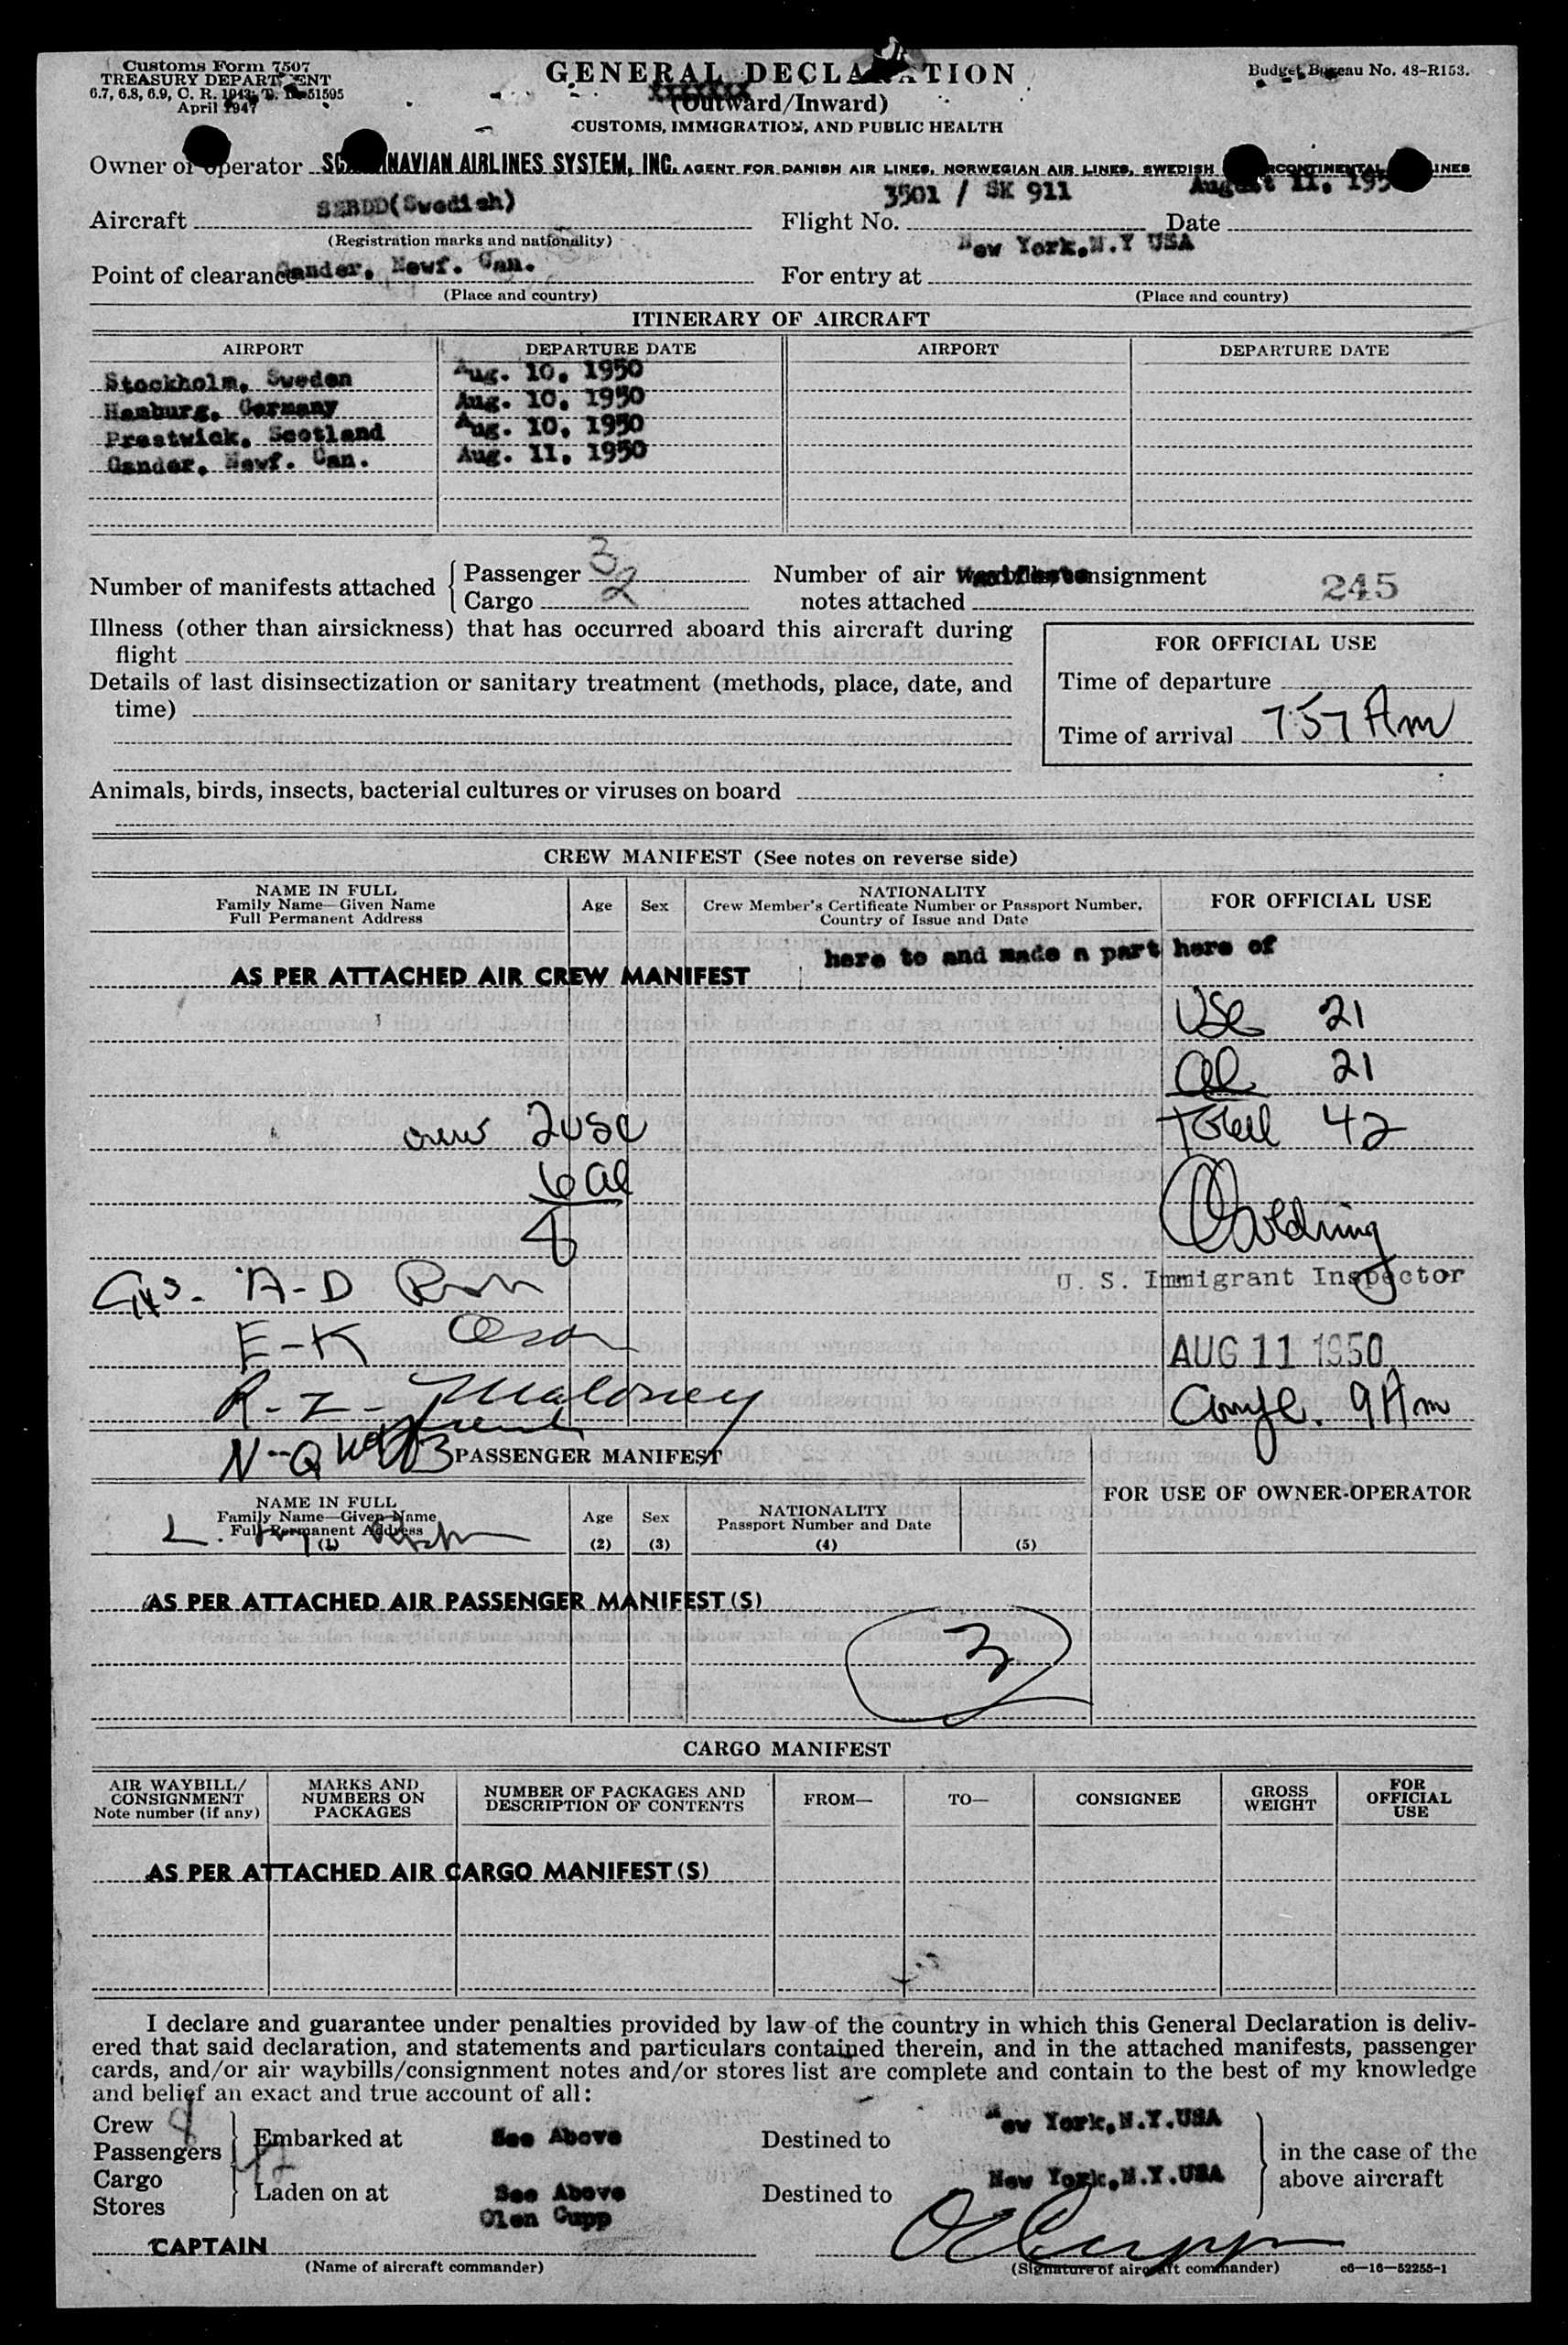 Customs Form 7507
TREASURY DEPARTMENT
6.7, 6.8, 6.9, C. R. 1943; T. D. 51595
April 1947
GENERAL DECLARATION
(Outward/Inward)
CUSTOMS, IMMIGRATION, AND PUBLIC HEALTH
Budget Bureau No. 48-R153.
Owner or Operator SCANDINAVIAN AIRLINES SYSTEM, INC. AGENT FOR DANISH AIR LINES, NORWEGIAN AIR LINES, SWEDISH INTERCONTINENTAL AIRLINES
Aircraft SEBDD(Swedish)
(Registration marks and nationality)
Flight No. 3501 / SK 911
Date August 11, 195
Point of clearance Gander, Newf. Can.
(Place and country)
For entry at New York,N.Y USA
(Place and country)
ITINERARY OF AIRCRAFT
AIRPORT DEPARTURE DATE AIRPORT DEPARTURE DATE
Stockholm, Sweden Aug. 10, 1950
Hamburg, Germany Aug. 10, 1950
Prestwick, Scotland Aug. 10, 1950
Gander, Newf. Can. Aug. 11, 1950
Number of manifests attached
Passenger 3
Cargo 2
Number of air
notes attached 245
Illness (other than airsickness) that has occurred aboard this aircraft during
flight
Details of last disinsectization or sanitary treatment (methods, place, date, and
time)
FOR OFFICIAL USE
Time of departure
Time of arrival 7:57 Am
Animals, birds, insects, bacterial cultures or viruses on board
CREW MANIFEST (See notes on reverse side)
NAME IN FULL
Family Name—Given Name
Full Permanent Address
Age
Sex
NATIONALITY
Crew Member's Certificate Number or Passport Number,
Country of Issue and Date
FOR OFFICIAL USE
AS PER ATTACHED AIR CREW MANIFEST here to and made a part here of
USC 21
al 21
Total 42
crew 2 usc
6 al
8
U. S. Immigrant Inspector
A-D
E-K Olson
AUG 11 1950
R-Z- Maloney
9 Am
N-Q
PASSENGER MANIFEST
NAME IN FULL
Family Name—Given Name
Full Permanent Address
(1)
Age
(2)
Sex
(3)
NATIONALITY
Passport Number and Date
(4)
(5)
FOR USE OF OWNER-OPERATOR
AS PER ATTACHED AIR PASSENGER MANIFEST(S)
3
CARGO MANIFEST
AIR WAYBILL/
CONSIGNMENT
Note number (if any)
MARKS AND
NUMBERS ON
PACKAGES
NUMBER OF PACKAGES AND
DESCRIPTION OF CONTENTS
FROM—
TO—
CONSIGNEE
GROSS
WEIGHT
FOR
OFFICIAL
USE
AS PER ATTACHED AIR CARGO MANIFEST(S)
I declare and guarantee under penalties provided by law of the country in which this General Declaration is deliv-
ered that said declaration, and statements and particulars contained therein, and in the attached manifests, passenger
cards, and/or air waybills/consignment notes and/or stores list are complete and contain to the best of my knowledge
and belief an exact and true account of all:
Crew 8
Passengers 42
Cargo
Stores
Embarked at See Above
Destined to New York,N.Y.USA
Laden on at See Above
Destined to New York,N.Y.USA
in the case of the
above aircraft
Olen Cupp
CAPTAIN
(Name of aircraft commander)
O Cupp
(Signature of aircraft commander)
c6—16—52255-1